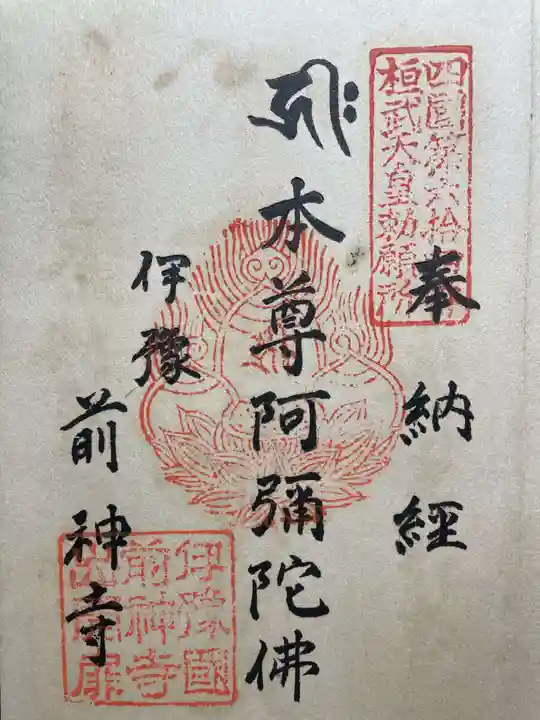 四国第六拾
桓武天皇勅願所
奉納経
本尊阿彌陀佛
伊豫
前神寺
伊豫國
前神寺